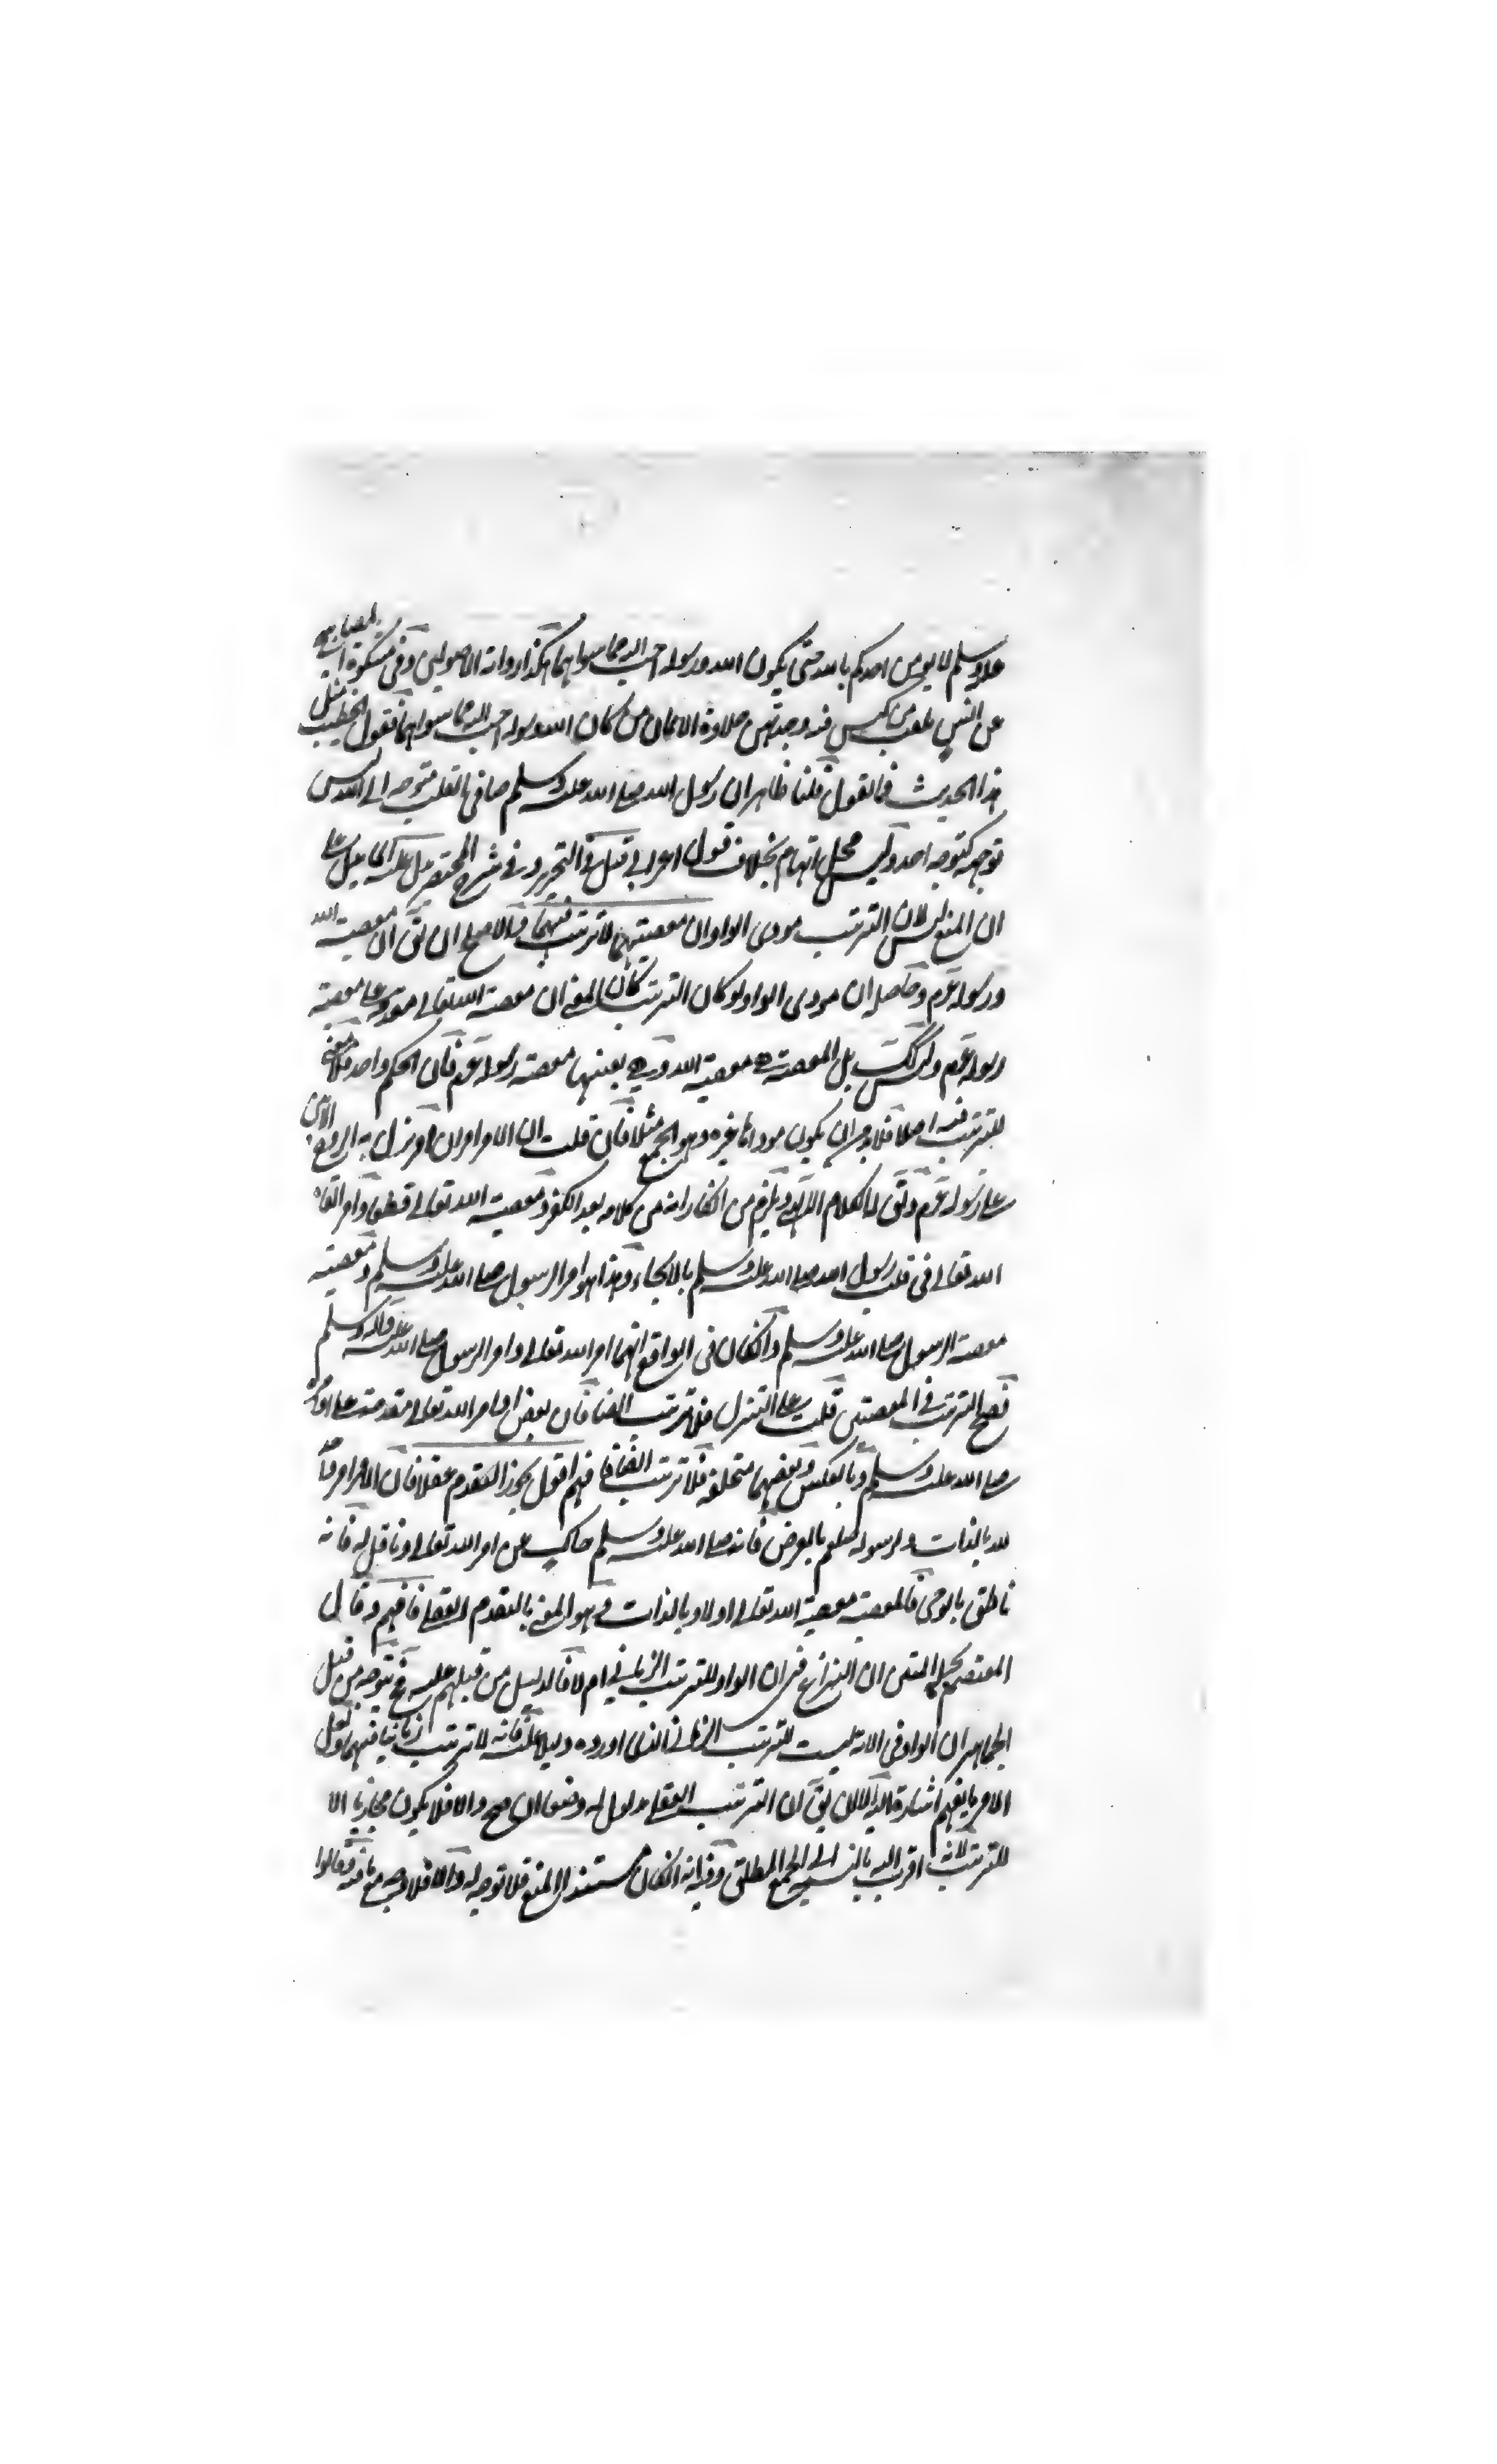 عليه وسلم لا يومن احدكم بالله حتى يكون الله ورسوله احب اليه مما سواهما هكذا رواته الاصولين وفى مشكوة المصابيح
عن انس بلفظ من كن فيه وجد بهن حلاوة الايمان من كان الله ورسوله احب اليه مما سواهما فقول الخطيب مثل
هذا الحديث فى القول قلنا ظاهر ان رسول الله صلى الله عليه وسلم صافى القلب متوجه الى الله ليس
توجهه كتوجه احد وليس محل اتهام بخلاف قول اعرابى قيل فى التحرير وفى شرح المختصر
ان المنع ليس لان الترتيب مودى الواو ان معصيتهما لا ترتيب فيهما والاصح ان يق ان معصية الله
ورسوله عم وحاصله ان مودى الواو لو كان الترتيب كان المعنى ان معصية الله تعالى مقدم على معصية
رسوله عم وليس كك بل المعصية معصية الله وهى بعينها معصية رسوله عم فان الحكم واحد فلا معنى
للترتيب فيه اصلا فلا بد ان يكون موداها غيره وهو الجمع مثلا فان قلت ان الامر امران امر نزل به الروح الامين
على رسوله عم ويق لها الكلام من كلامه بعد الكفر ومعصية الله تعالى قطعا وامر القاه
الله تعالى فى قلب رسول الله صلى الله عليه وسلم بالايحاء وهذا هو امر الرسول صلى الله عليه وسلم ومعصيته
معصية الرسول صلى الله عليه وسلم وان كان فى الواقع انهما امر الله تعالى وامر الرسول صلى الله عليه واله وسلم
فصح الترتيب فى المعصيتين قلت على التنزل فلا ترتيب ايضا فان بعض اوامر الله تعالى مقدمة على اوامره
صلى الله عليه وسلم وبالعكس وبعضهما متخللة فلا ترتيب ايضا فافهم اقول يجوز التقدم عقلا فان الامر امر واحد
لله بالذات ولرسوله صلعم بالعرض فانه صلى الله عليه وسلم حاك عن امر الله تعالى وناقل له فانه
ناطق بالوحى فالمعصية معصية الله تعالى اولا وبالذات وهو المعنى بالتقدم العقلى فافهم وقال
المعتصم بحبل الله المتين ان النزاع فى ان الواو للترتيب الزمانى ام لا فالدليل من قبلهم عليه فح يتوجه من قبل
الجماهير ان الواو فى الاية ليست للترتيب الزمانى الذى اوردوه دليلا عليه فانه لا ترتيب زمانيا فيهما لعل
الامر بالفهم اشارة اليه الا ان يق ان الترتيب العقلى مدلول له وضعا ان صح والا فلا يكون مجازيا الا
للترتيب لانه اقرب اليه بالنسبة الى الجمع المطلق وفيه انه ان كان مستندا الى المنع فلا توجه له والا فلا وجه